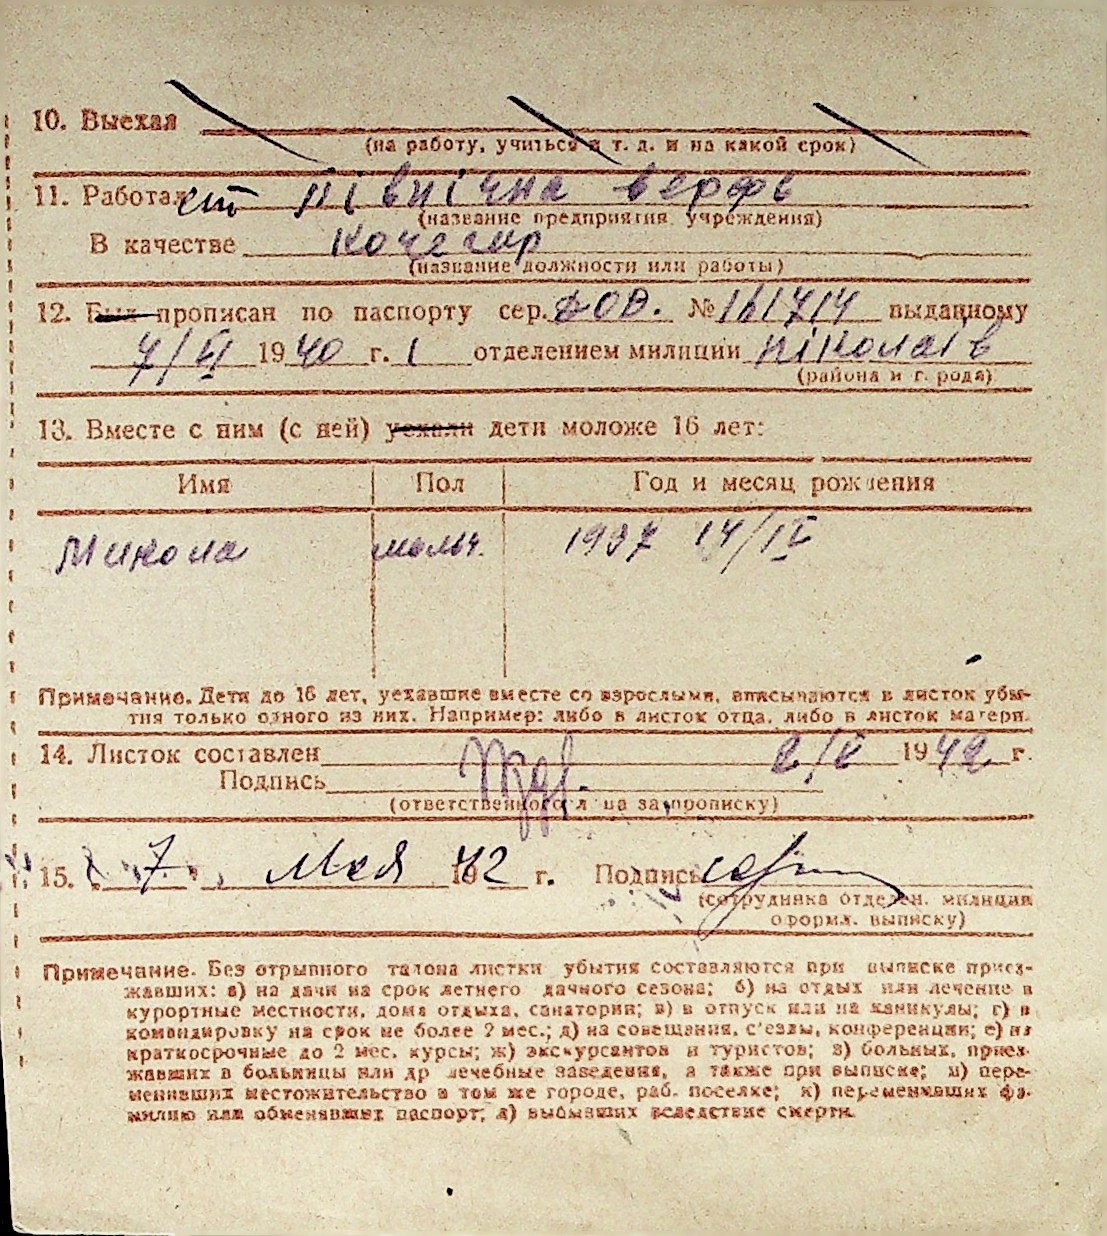 10. Выехал
(на работу, учиться и т. д. и на какой срок)
11. Работает Північна верфь
(название предприятия, учреждения)
В качестве Кочегар
(название должности или работы)
12. Был прописан по паспорту сер. № 161714 выданному
7/VI 1940 г. 1 отделением милиции Ніколаів
(района и города)
13. Вместе с ним (с ней) уехали дети моложе 16 лет:
Имя Пол Год и месяц рождения
Микола мальч. 1937 14/IV
Примечание. Дети до 16 лет, уехавшие вместе со взрослыми, вписываются в листок убы-
тия только одного из них. Например: либо в листок отца, либо в листок матери.
14. Листок составлен 2/V 1942 г.
Подпись
(ответственного лица за прописку)
15. 7 Мая 1942 г. Подпись
(сотрудника отделен. милиции
оформл. выписку)
Примечание. Без отрывного талона листки убытия составляются при выписке приез-
жавших: а) на дачи на срок летнего дачного сезона; б) на отдых или лечение в
курортные местности, дома отдыха, санатории; в) в отпуск или на каникулы; г) в
командировку на срок не более 2 мес.; д) на совещания, с'езды, конференции; е) на
краткосрочные до 2 мес. курсы; ж) экскурсантов и туристов; з) больных, приез-
жавших в больницы или др лечебные заведения, а также при выписке; и) пере-
менивших местожительство в том же городе, раб. поселке; к) переменивших фа-
милию или обменявших паспорт; л) выбывших вследствие смерти.